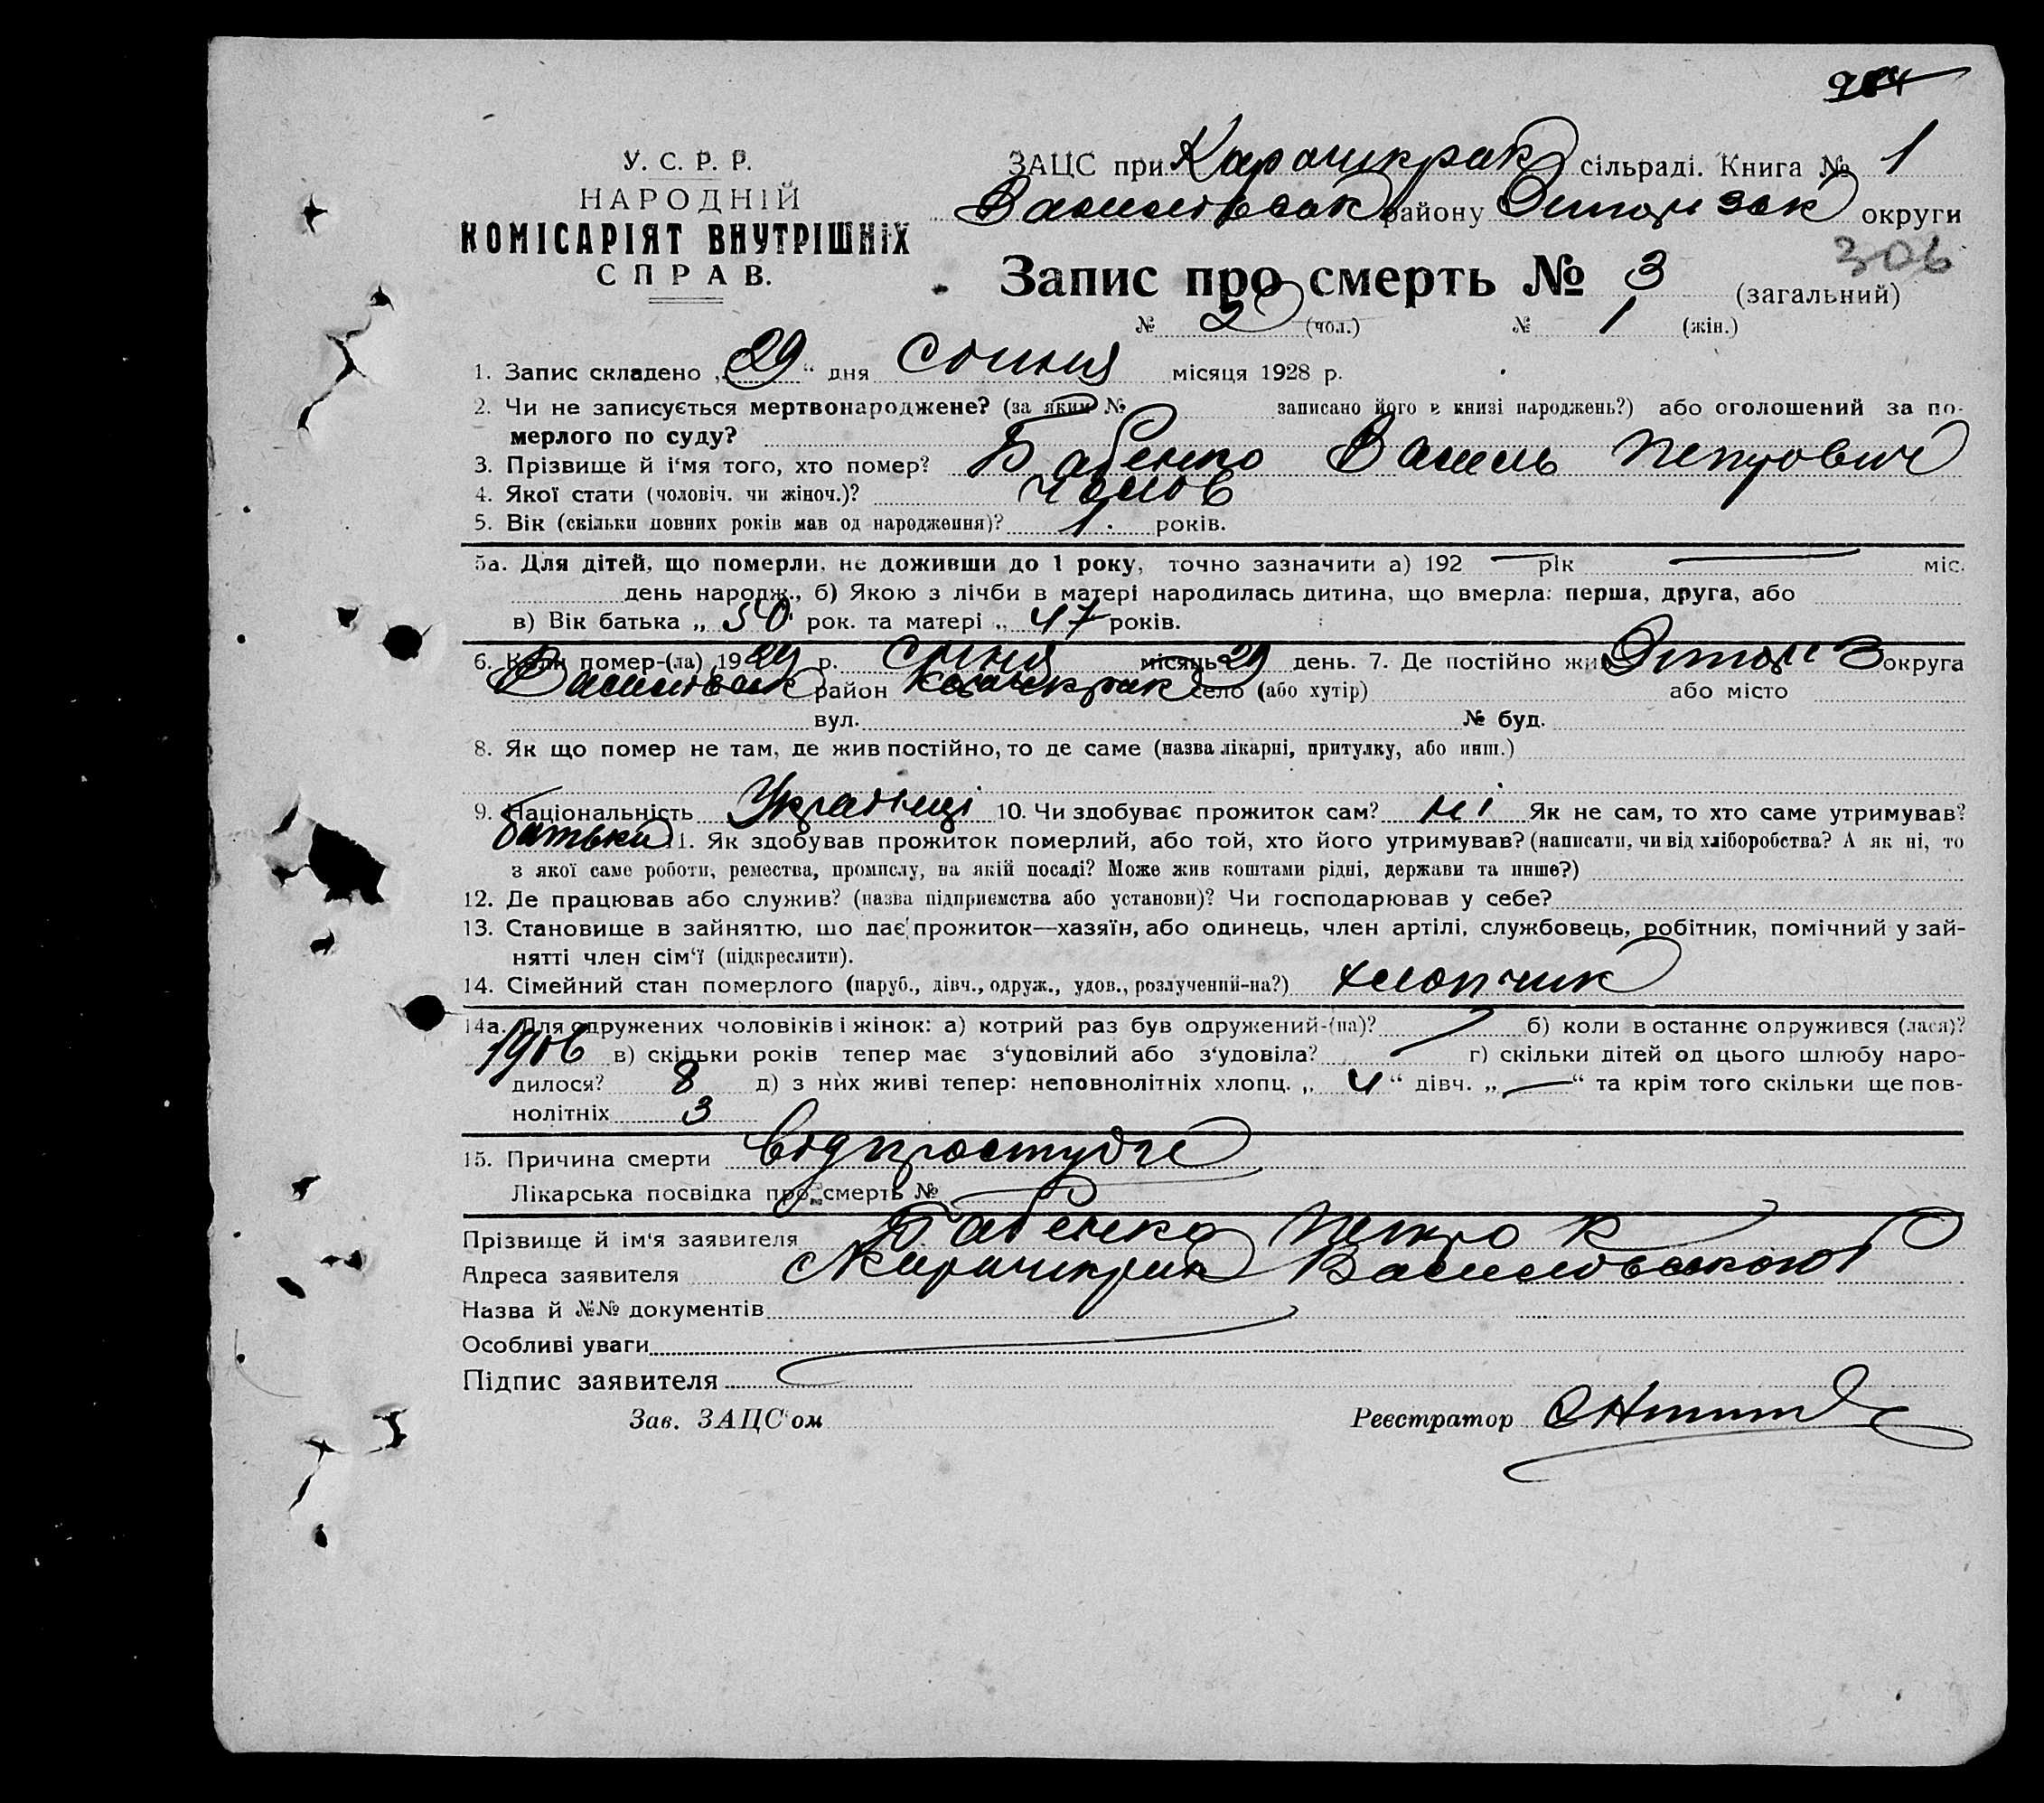 У. С. Р. Р.
НАРОДНІЙ
КОМІСАРІЯТ ВНУТРІШНІХ
СПРАВ.
ЗАЦС при Карачикрак сільраді. Книга № 1
Василівськ району округи
306
Запис про смерть № 3 (загальний)
№ 2 (чол.) № 1 (жін.)
1. Запис складено „29“ дня Січня місяця 1928 р.
2. Чи не записується мертвонароджене? (за яким № записано його в книзі народжень?) або оголошений за по-
мерлого по суду?
3. Прізвище й і'мя того, хто помер? Бабенко Василь Петрович
4. Якої стати (чоловіч. чи жіноч.)? чолов
5. Вік (скільки повних років мав од народження)? 1. років.
5а. Для дітей, що померли, не доживши до 1 року, точно зазначити а) 192 — рік — міс.
день народж., б) Якою з лічби в матері народилась дитина, що вмерла: перша, друга, або
в) Вік батька „50 рок. та матері „47 років.
6. Коли помер-(ла) 19 р. Січня місяць 29 день. 7. Де постійно жив округа
Василівськ район Карачикрак село (або хутір) або місто
вул. № буд.
8. Як що помер не там, де жив постійно, то де саме (назва лікарні, притулку, або инш.)
9. Національність Українці 10. Чи здобуває прожиток сам? ні Як не сам, то хто саме утримував?
батьки 11. Як здобував прожиток померлий, або той, хто його утримував? (написати, чи від хліборобства? А як ні, то
з якої саме роботи, ремества, промислу, на якій посаді? Може жив коштами рідні, держави та инше?)
12. Де працював або служив? (назва підприємства або установи)? Чи господарював у себе?
13. Становище в зайняттю, що дає прожиток—хазяїн, або одинець, член артілі, службовець, робітник, помічний у зай-
нятті член сім'ї (підкреслити).
14. Сімейний стан померлого (паруб., дівч., одруж., удов., розлучений-на?) хлопчик
14а. Для одружених чоловіків і жінок: а) котрий раз був одружений-(на)? б) коли в останнє одружився (лася)?
1906 в) скільки років тепер має з'удовілий або з'удовіла? — г) скільки дітей од цього шлюбу наро-
дилося? 8 д) з них живі тепер: неповнолітніх хлопц. „4“ дівч. „—“ та крім того скільки ще пов-
нолітніх 3
15. Причина смерти від простуди
Лікарська посвідка про смерть №
Прізвище й ім'я заявителя Бабенко Петро К
Адреса заявителя Карачикрак Василівського
Назва й №№ документів
Особливі уваги
Підпис заявителя
Зав. ЗАЦС'ом Реєстратор